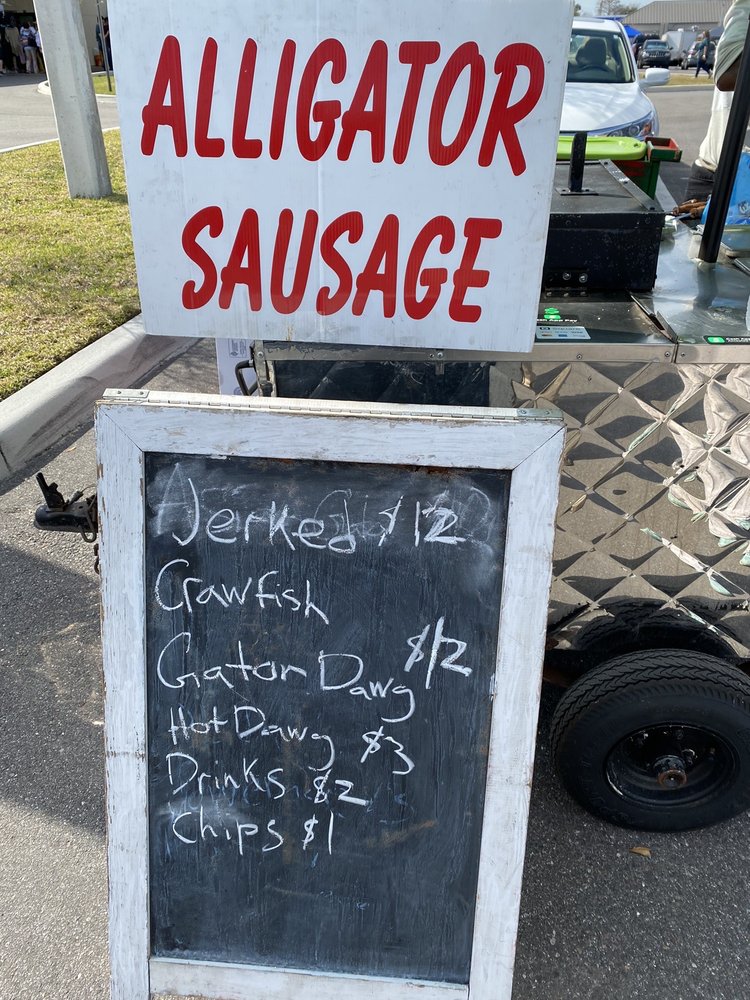 ALLIGATOR
SAUSAGE
Jerked $12
Crawfish
Gator Dawg $12
Hot Dawg $3
Drinks $2
Chips $1